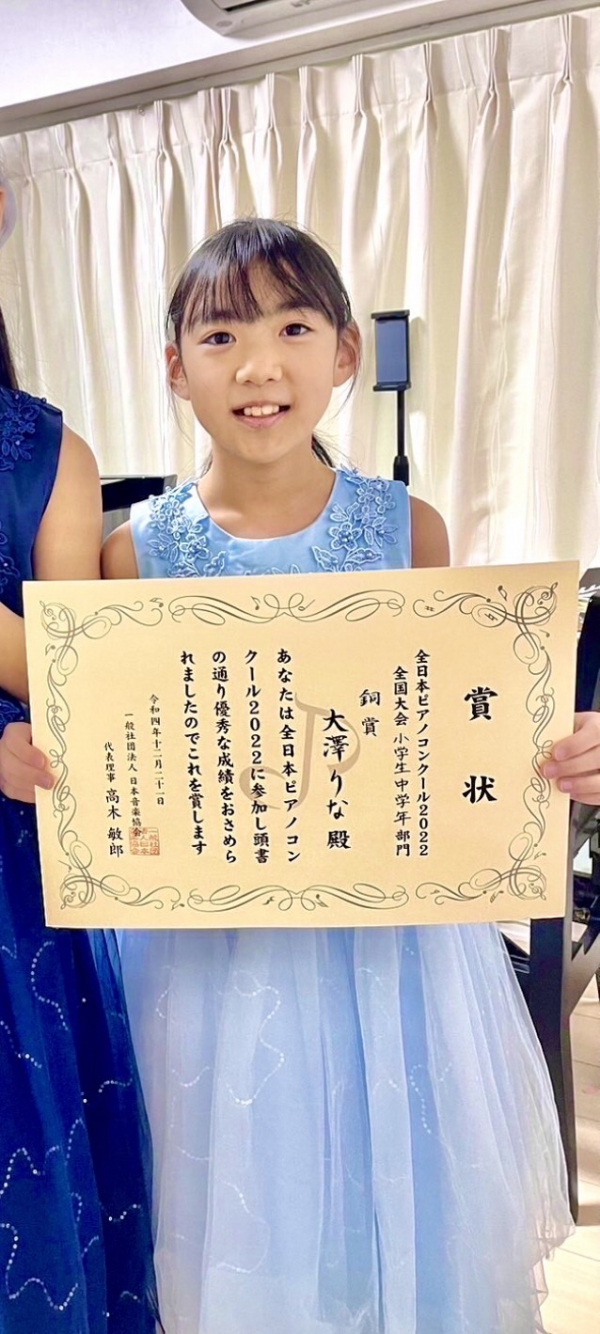 賞状
全日本ピアノコンクール2022
全国大会 小学生中学年部門
銅賞
大澤りな 殿
あなたは全日本ピアノコン
クール2022に参加し頭書
の通り優秀な成績をおさめら
れましたのでこれを賞します
令和四年十二月二十一日
一般社団法人 日本音楽協会
代表理事 高木 敏郎